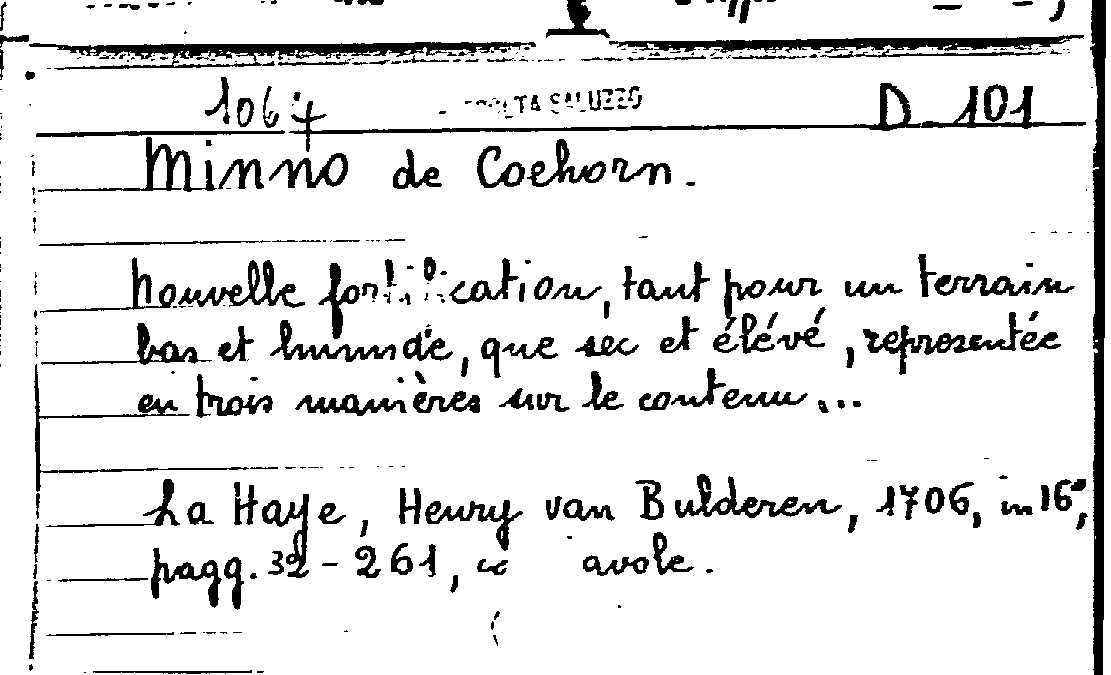 1067 SALUZZO D 101
Minno de Coehorn.
Nouvelle fortification, tant pour un terrain
bas et humide, que sec et élévé, représentée
en trois manières sur le contenu...
La Haye, Heury van Bulderen, 1706, in 16°,
pagg. 32 - 261, avole.